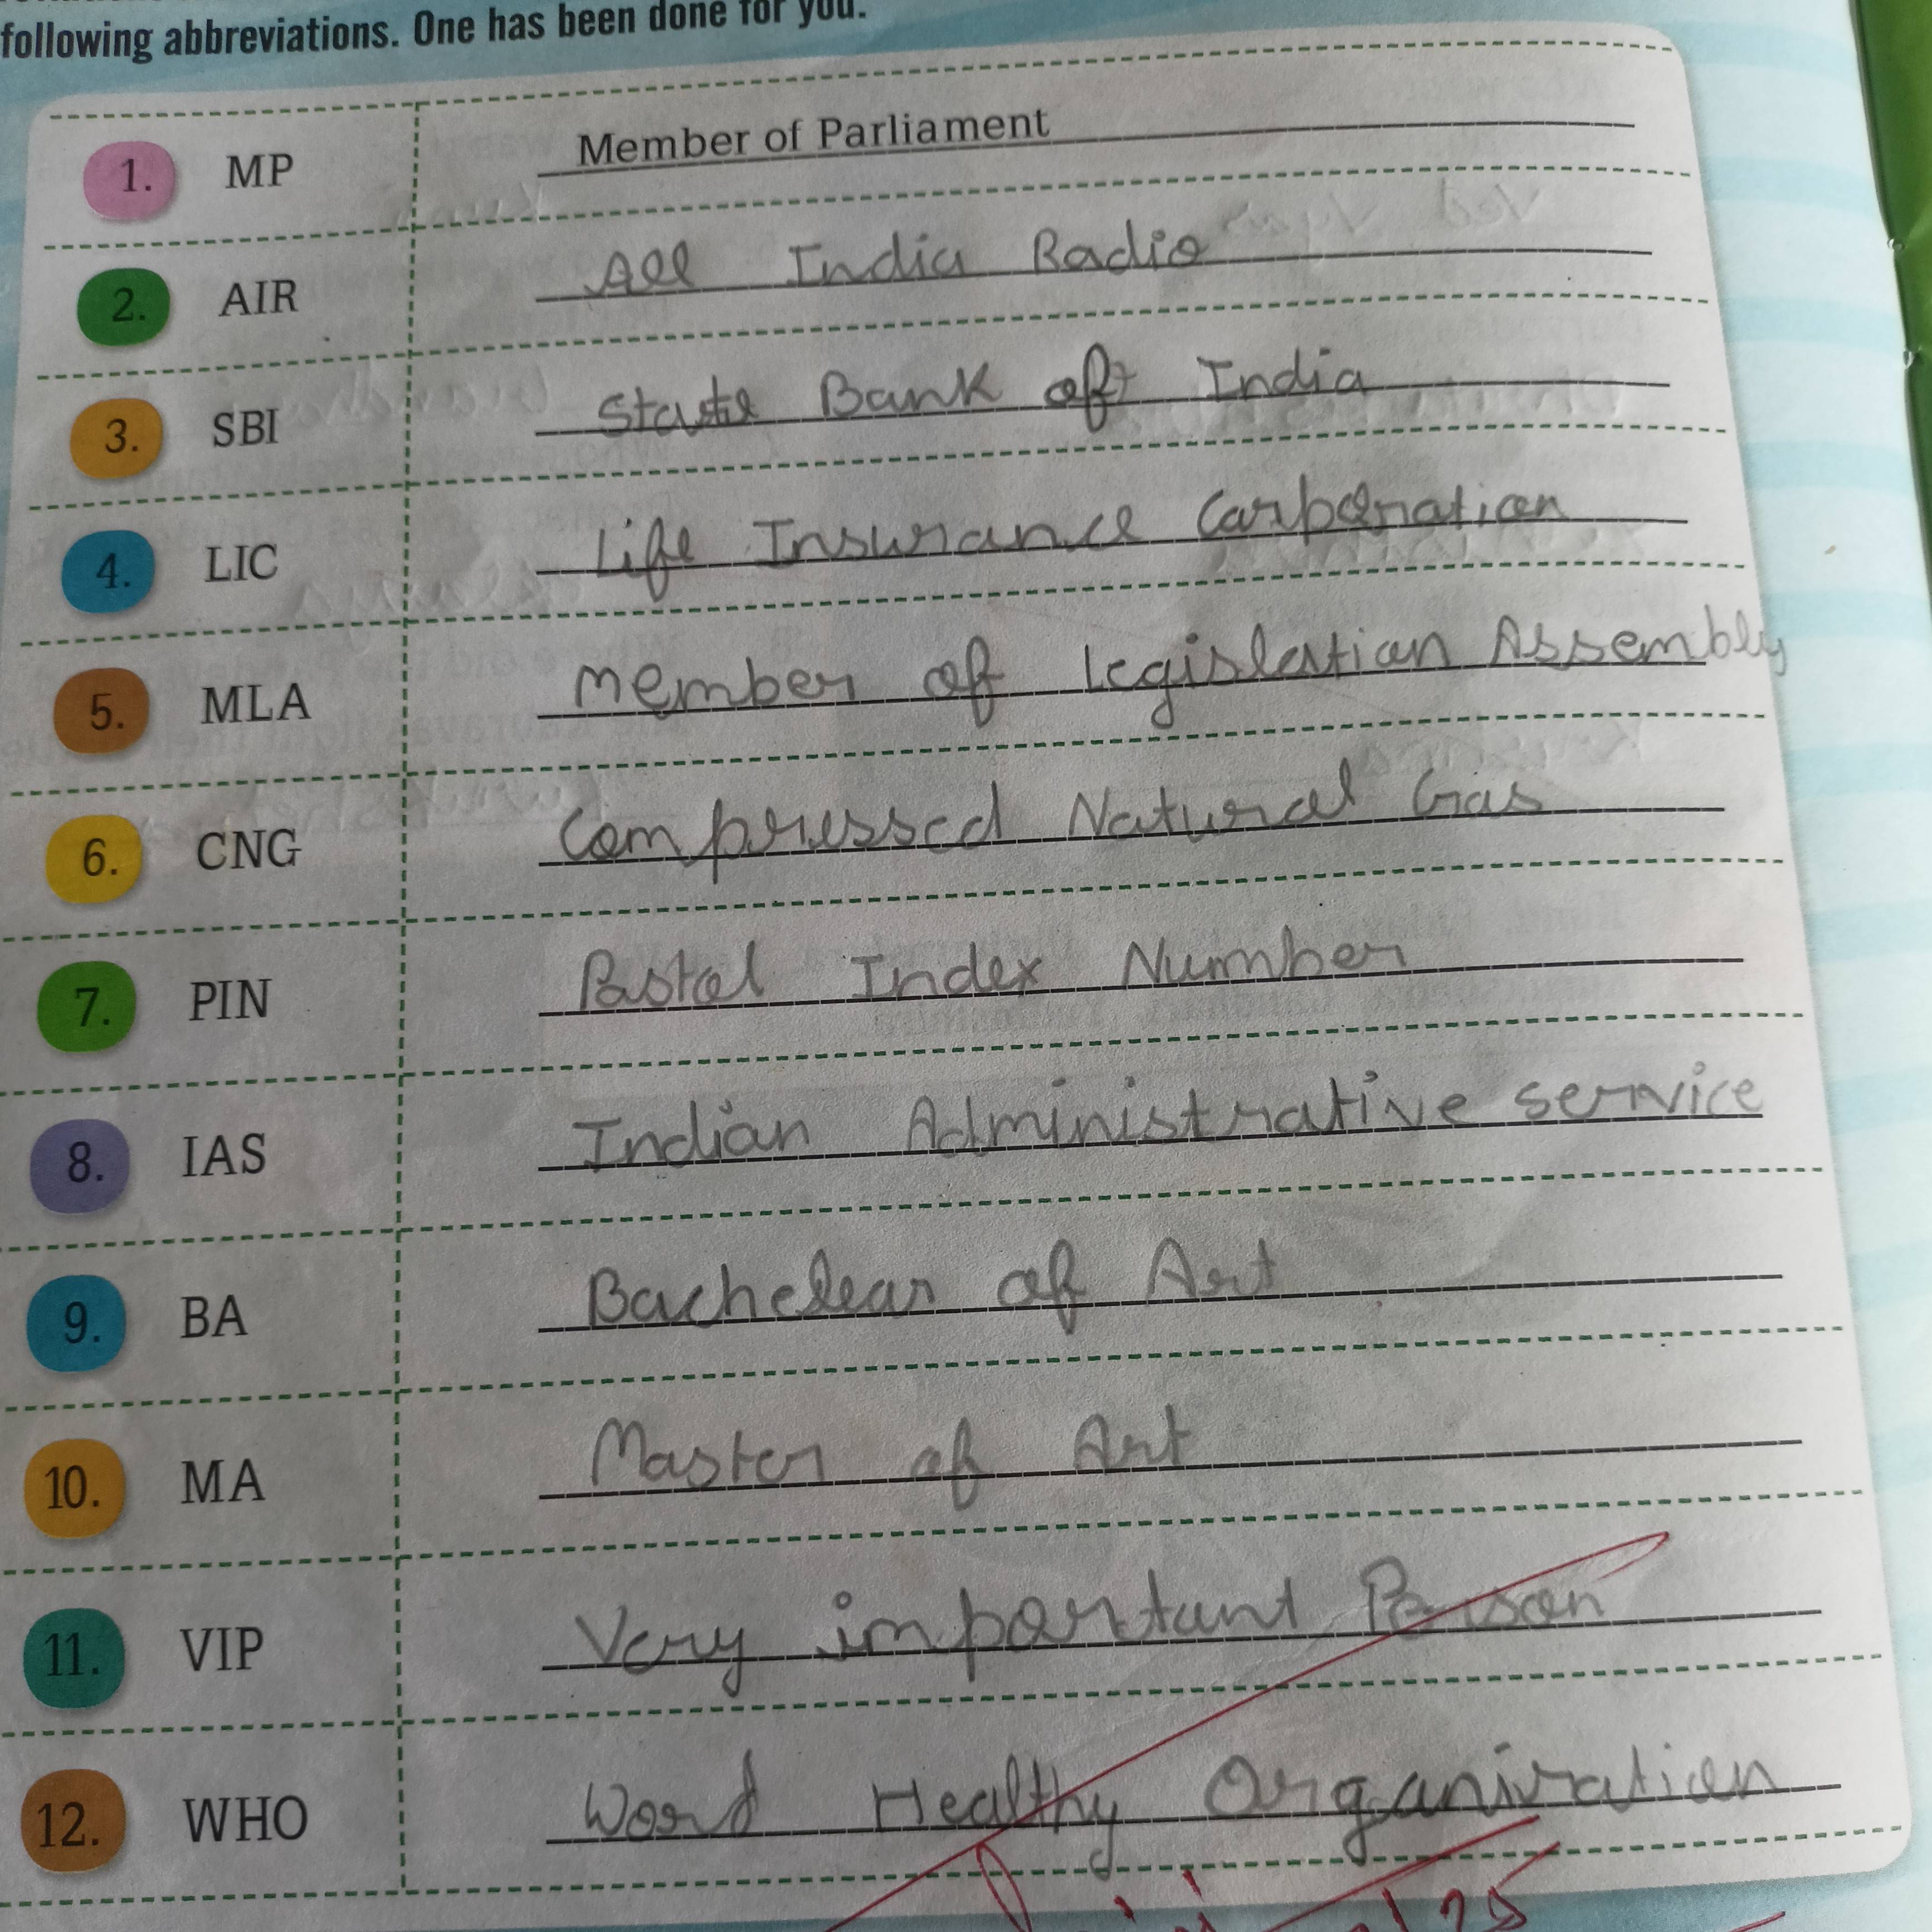 following abbreviations. One has been done for you.
1. MP Member of Parliament
2. AIR All India Radio
3. SBI State Bank of India
4. LIC Life Insurance Carporation
5. MLA Member of Legislation Assembly
6. CNG Compressed Natural Gas
7. PIN Postal Index Number
8. IAS Indian Administrative service
9. BA Bachelear of Art
10. MA Master of Art
11. VIP Very important Person
12. WHO Word Healthy Organisation